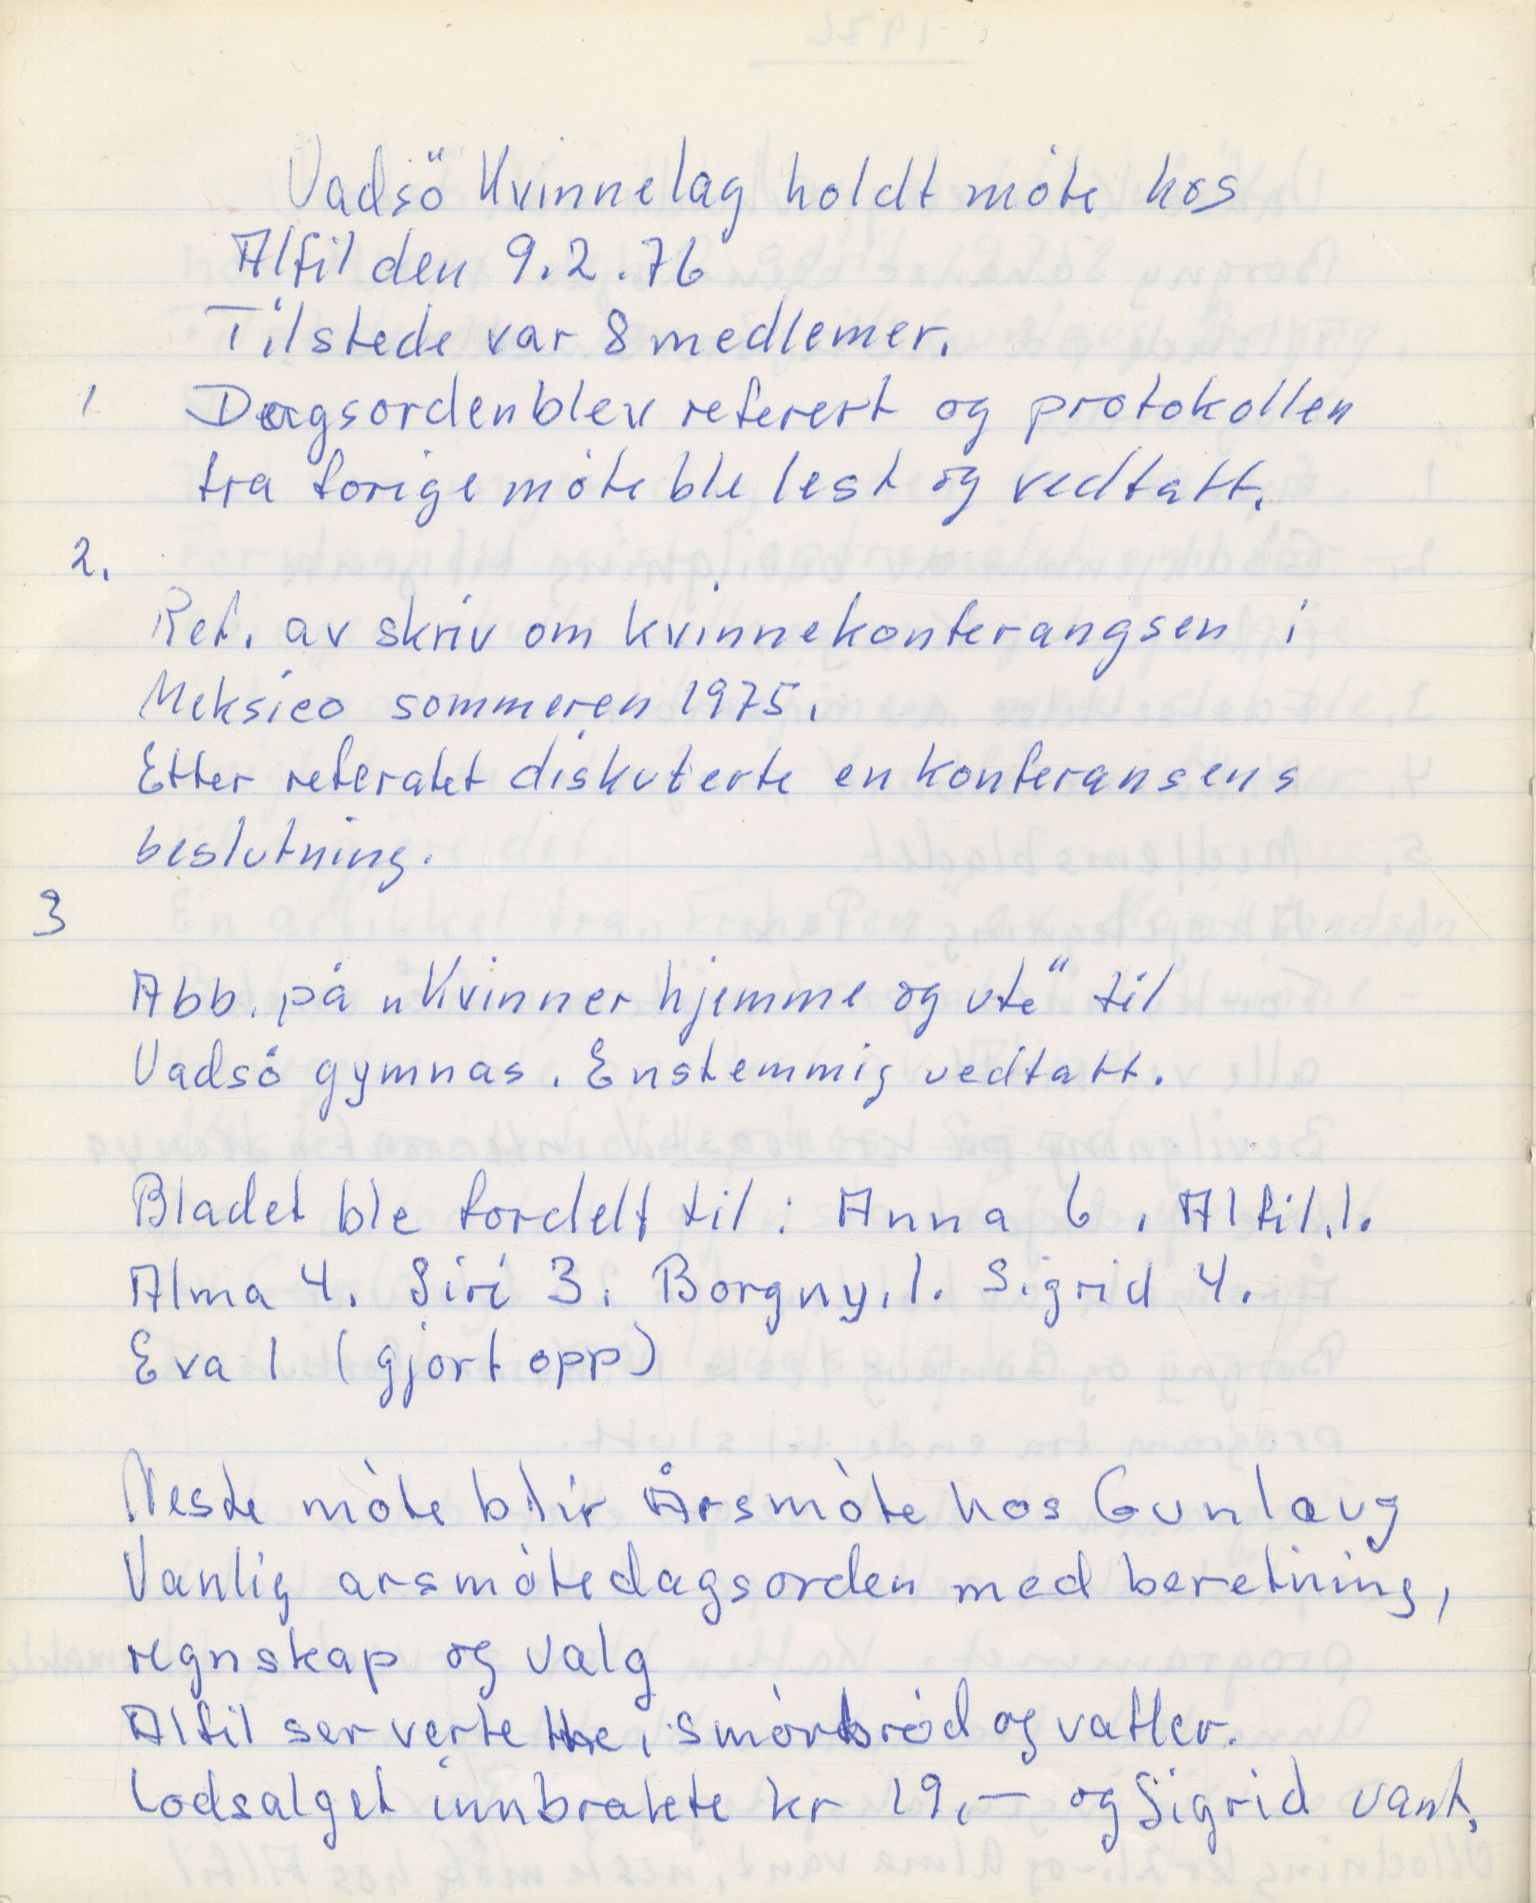 Vadsö Kvinnelag holdt möte hos
Alfil den 9.2.76
Tilstede var 8 medlemer.
1 Dagsorden blev referert og protokollen
fra forige möte ble lest og vedtatt.
2.
Ref. av skriv om kvinnekonferangsen i
Meksico sommeren 1975.
Etter referatet diskuterte en konferansens
beslutning.
3
Abb. på „Kvinner hjemme og ute" til
Vadsö gymnas. Enstemmig vedtatt.
Bladet ble fordelt til: Anna 6, Alfil.1.
Alma 4. Siri 3. Borgny.1. Sigrid 4.
Eva 1 (gjort opp)
Neste möte blir Årsmöte hos Gunlaug
Vanlig arsmötedagsorden med beretning,
regnskap og valg
Alfil serverte the, smörbröd og vafler.
Lodsalget innbrakte kr 19,— og Sigrid vant.